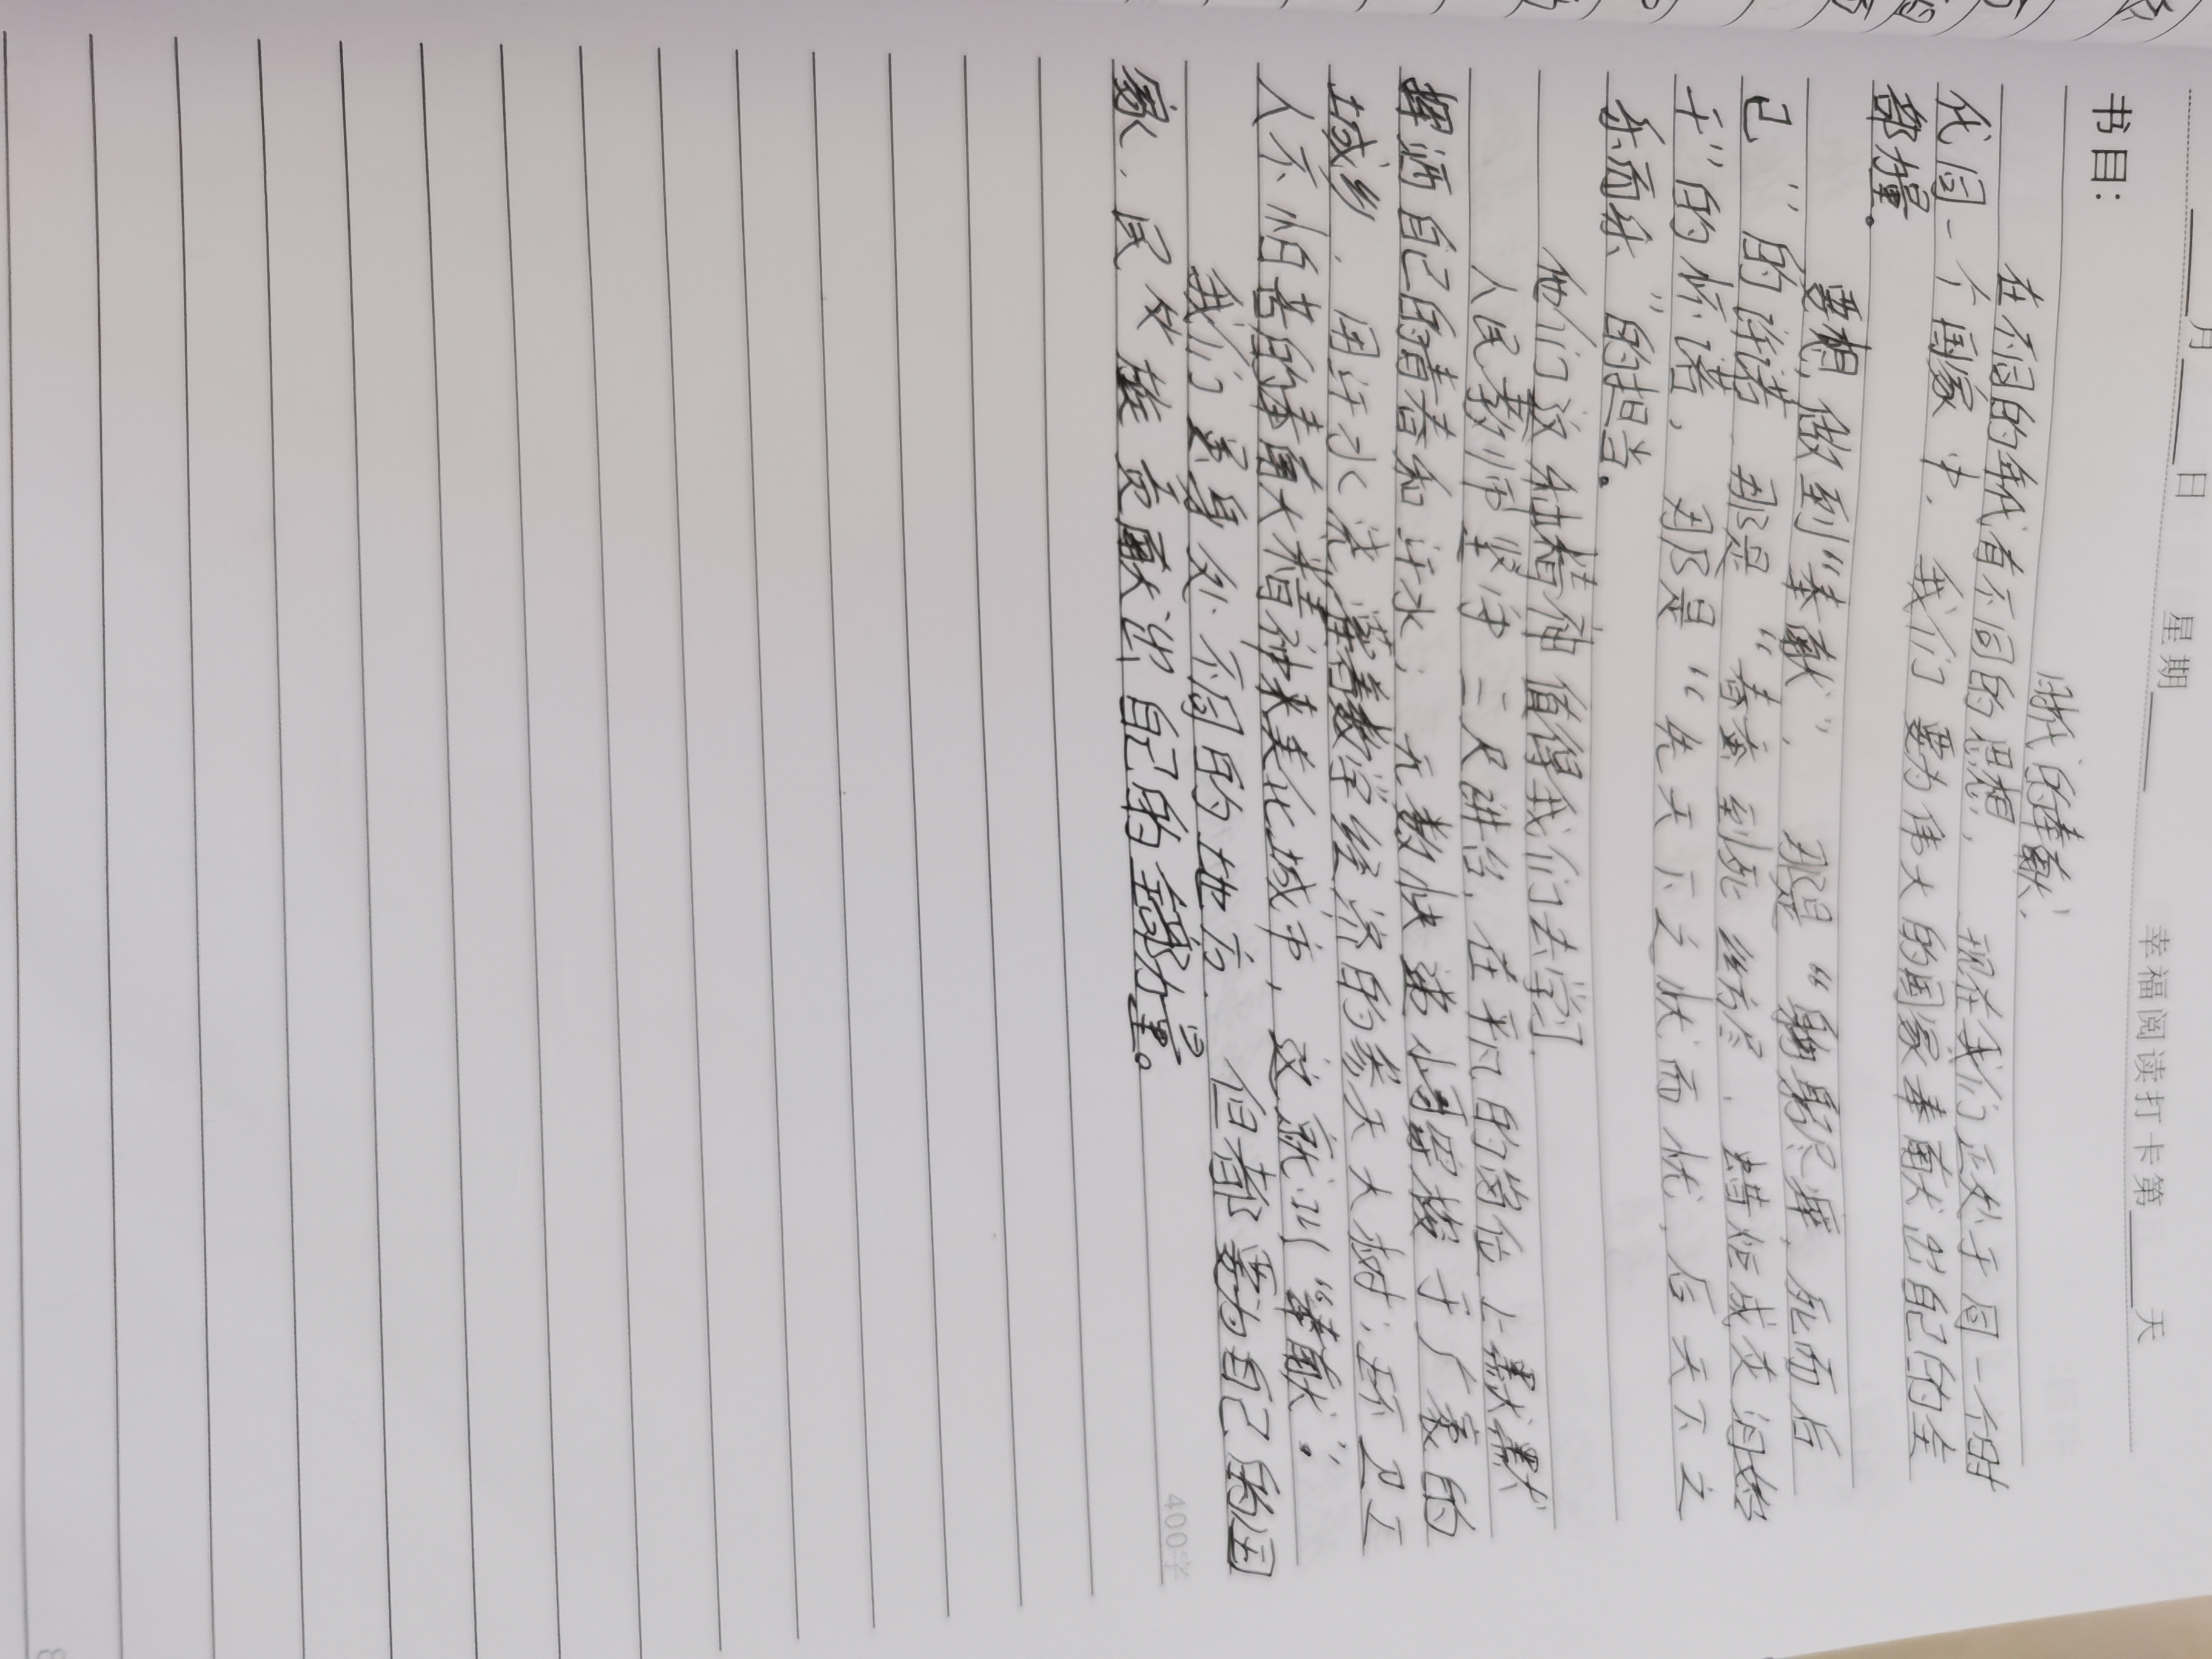 月 日 星期 幸福阅读打卡第 天
书目:
时代的奉献
在不同的年代有不同的思想,现在我们正处于同一个时
代同一个国家中,我们要为伟大的国家奉献出自己的全
部力量。
要想做到“奉献”,那是“鞠躬尽瘁,死而后
已”的许诺,那是“春蚕到死丝方尽,蜡炬成灰泪始
干”的承诺,那是“先天下之忧而忧,后天下之
乐而乐”的担当。
他们这种精神值得我们去学习
人民教师坚守三尺讲台,在平凡的岗位上默默
挥洒自己的青春和汗水;无数快递小哥穿梭于广袤的
城乡,用汗水浇灌着数字经济的参天大树;环卫工
人不怕苦的奉献大精神来美化城市,这就叫“奉献”。
我们身处不同的地方,但都要为自己的国
家、民族贡献出自己的全部力量。
400字
8